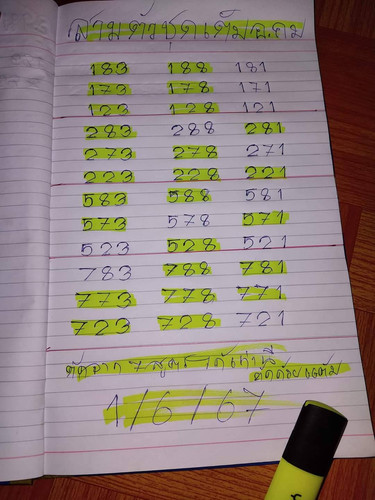 สามตัวชุดเต็มอ.ถม
183 188 181
173 178 171
123 128 121
283 288 281
273 278 271
223 228 221
583 588 581
573 578 571
523 528 521
783 788 781
773 778 771
723 728 721
ตัดจาก 7 สูตร ได้เท่านี้
1/6/67